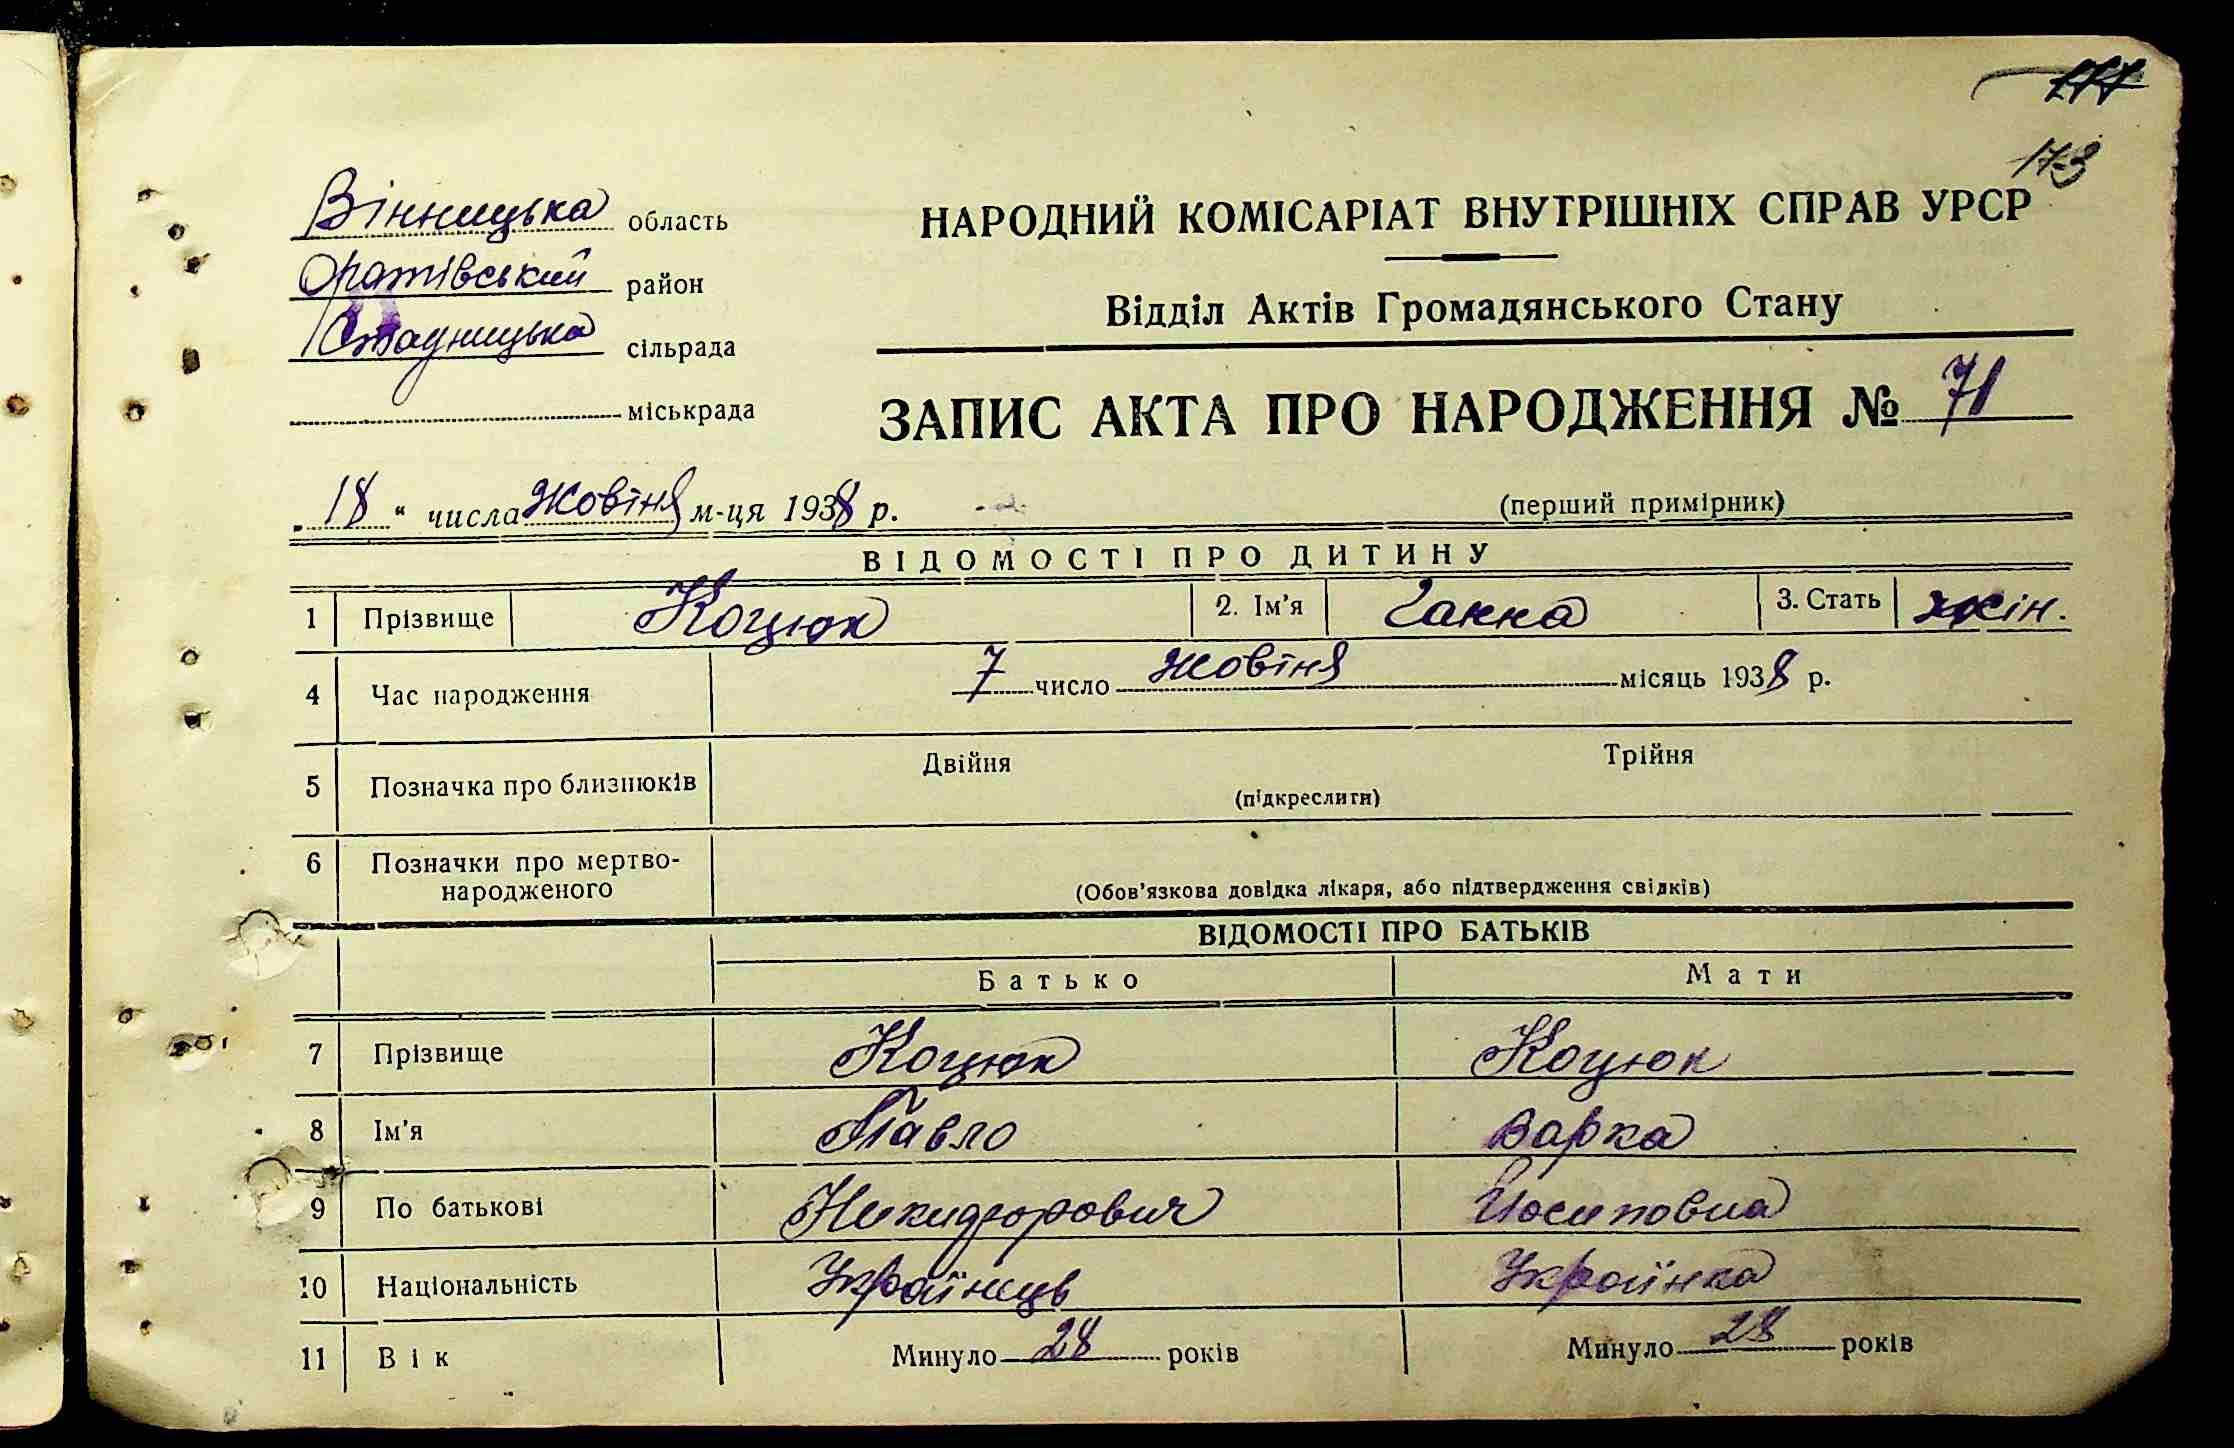 177
173
Вінницька область
Оратівський район
Стадницька сільрада
міськрада
НАРОДНИЙ КОМІСАРІАТ ВНУТРІШНІХ СПРАВ УРСР
Відділ Актів Громадянського Стану
ЗАПИС АКТА ПРО НАРОДЖЕННЯ № 71
„ 18 “ числа Жовтня м-ця 1938 р.
(перший примірник)
ВІДОМОСТІ ПРО ДИТИНУ
1 Прізвище Коцюк 2. Ім'я Ганна 3. Стать жін.
4 Час народження 7 число Жовтня місяць 1938 р.
5 Позначка про близнюків Двійня Трійня
(підкреслити)
6 Позначки про мертво-
народженого
(Обов'язкова довідка лікаря, або підтвердження свідків)
ВІДОМОСТІ ПРО БАТЬКІВ
Батько Мати
7 Прізвище Коцюк Коцюк
8 Ім'я Павло Варка
9 По батькові Никифорович Йосиповна
10 Національність Українець Українка
11 Вік Минуло 28 років Минуло 28 років